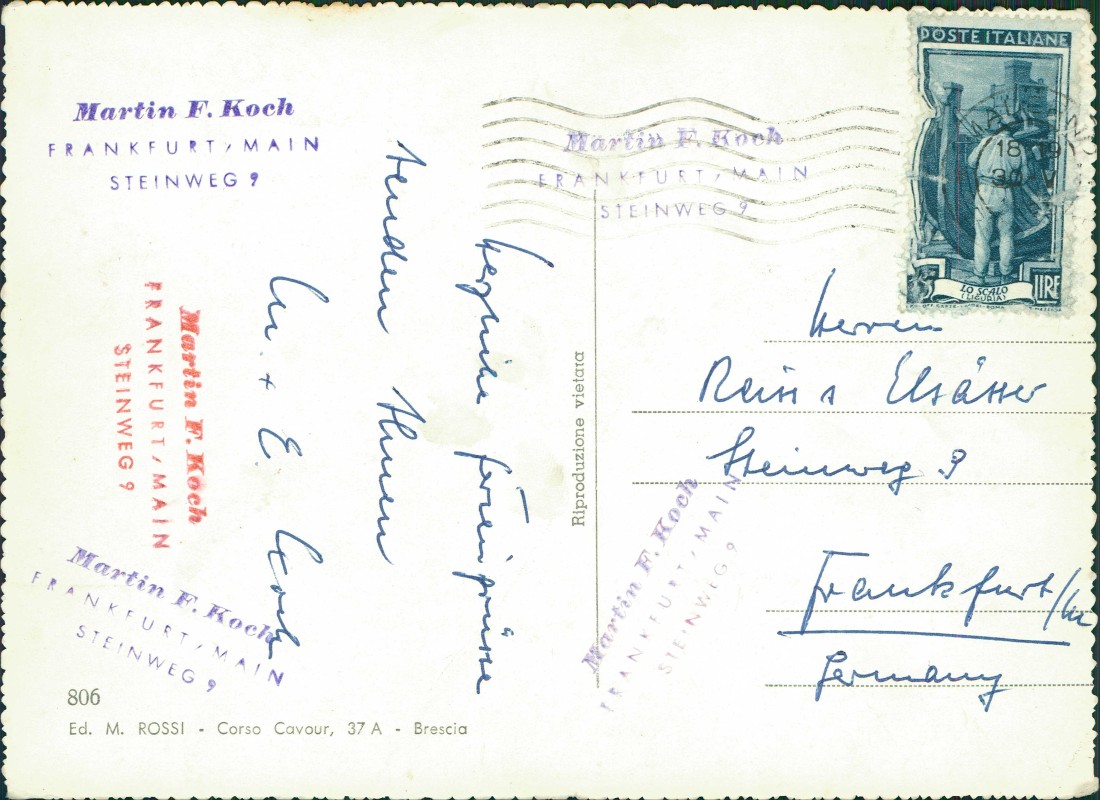 Martin F. Koch
FRANKFURT/MAIN
STEINWEG 9
Martin F. Koch
FRANKFURT/MAIN
STEINWEG 9
Martin F. Koch
FRANKFURT/MAIN
STEINWEG 9
Herzliche Feriengrüsse
senden Ihnen
M. + E. Koch
806
Ed. M. ROSSI - Corso Cavour, 37 A - Brescia
Riproduzione vietata
Martin F. Koch
FRANKFURT/MAIN
STEINWEG 9
POSTE ITALIANE
18 19
30 V
LO SCALO
(LIGURIA)
LIRE
Herren
Reiss & Elsässer
Steinweg 9
Frankfurt/M
Germany
Martin F. Koch
FRANKFURT/MAIN
STEINWEG 9